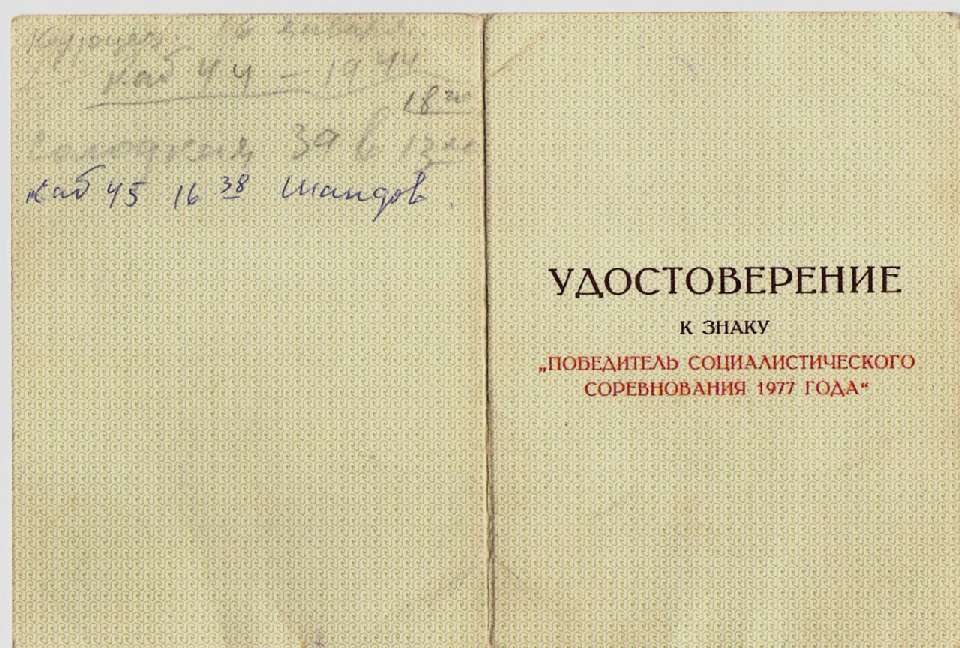 16 января.
каб 44 – 19 44
18
за в
каб 45 16 38 Шандов.
УДОСТОВЕРЕНИЕ
К ЗНАКУ
„ПОБЕДИТЕЛЬ СОЦИАЛИСТИЧЕСКОГО
СОРЕВНОВАНИЯ 1977 ГОДА“